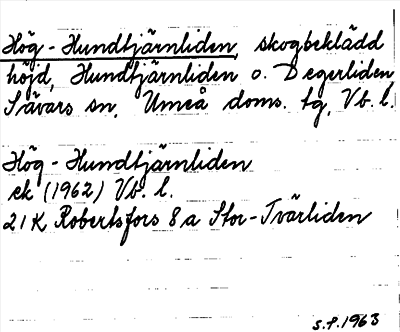 Hög-Hundtjärnliden, skogbeklädd
höjd, Hundtjärnliden o. Degerliden,
Sävars sn, Umeå doms. tg, Vb. l.
Hög-Hundtjärnliden
ek (1962) Vb. l.
21K Robertsfors 8 a Stor-Tvärliden
S.P. 1963